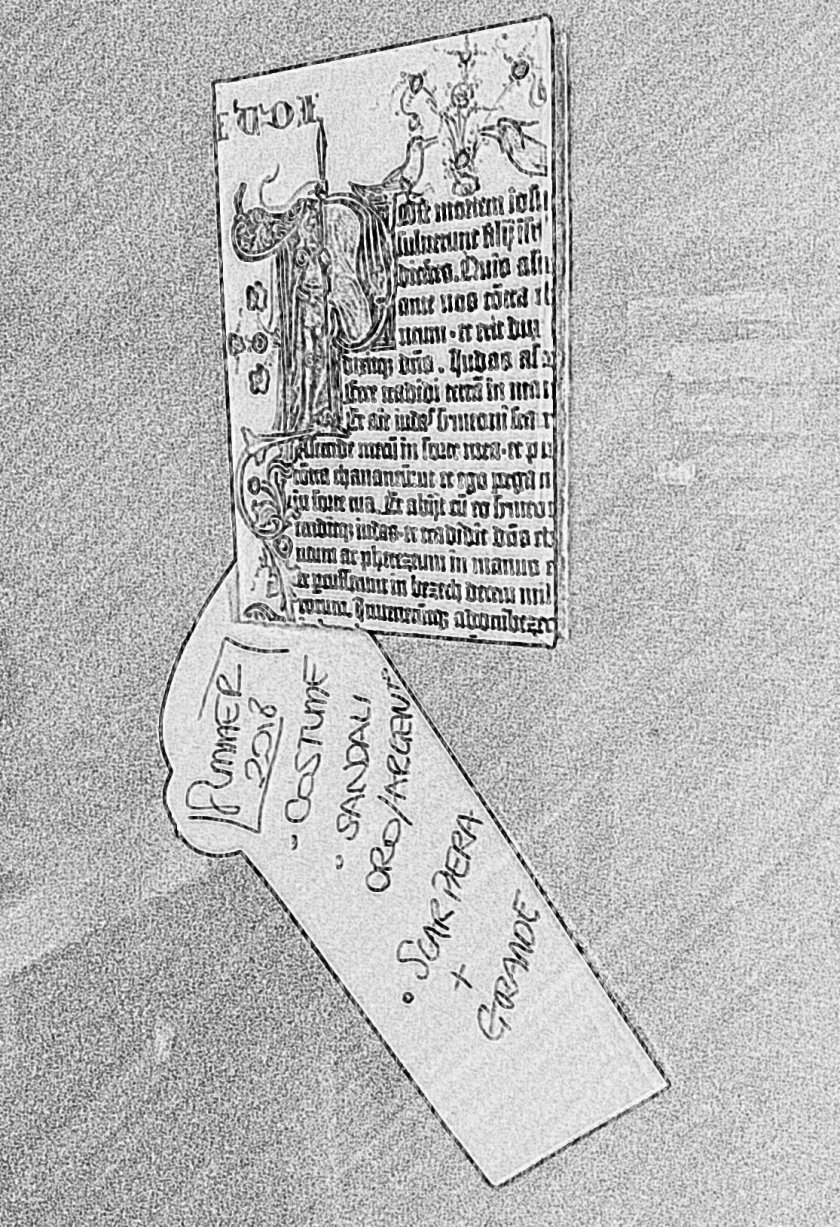 Post mortem iosu
suluerunt filij isr
dicẽtes. Quis asc
ante nos cõtra
et erit dux
dixitq; dñs. Judas as
ecce tradidi terrã in man
Et ait iudas symeoni frat
Ascende mecũ in sorte mea. et pu
cõtra chananeũ ut et ego pergã
in sorte tua. Et abijt cũ eo symeo
cenditq; iudas. et tradidit dñs ch
neum ac pherezeum in manus e
et percusserunt in bezech decem mil
uirorum. Inuenerũtq; adonibezec
SUMMER
2018
• COSTUME
• SANDALI
ORO/ARGENTO
• SCARPIERA
+
GRANDE